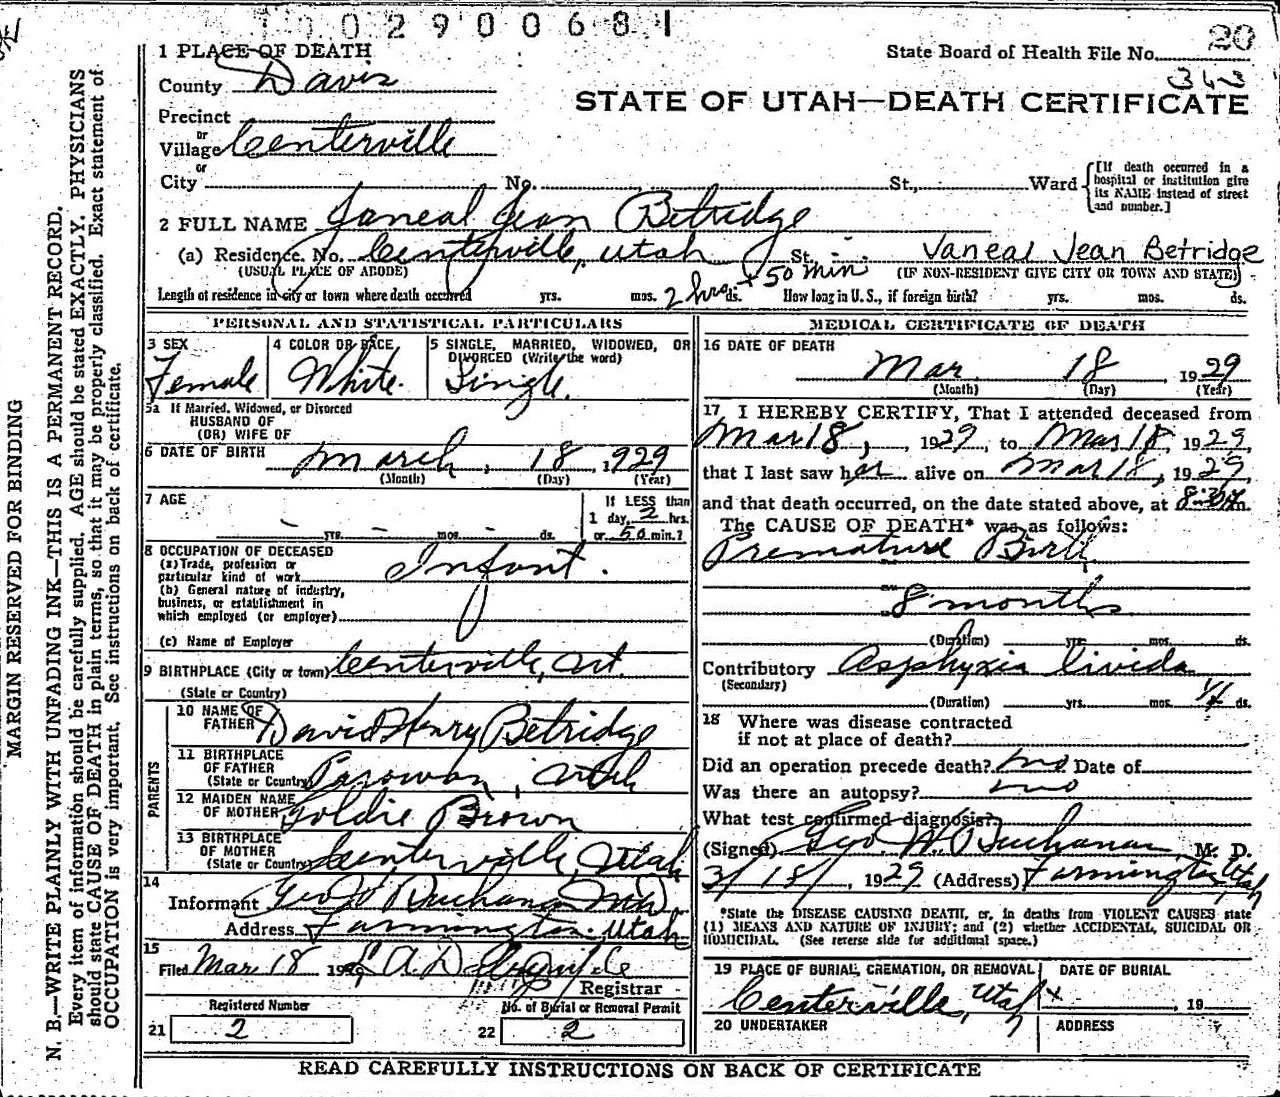 0 0 2 9 0 0 6 8 1
1 PLACE OF DEATH
State Board of Health File No. 20
County Davis
343
STATE OF UTAH—DEATH CERTIFICATE
Precinct
or
Village Centerville
or
City No. St., Ward
[If death occurred in a hospital or institution give its NAME instead of street and number.]
2 FULL NAME Janeal Jean Betridge
(a) Residence. No. Centerville, Utah St. Vaneal Jean Betridge
(USUAL PLACE OF ABODE) (IF NON-RESIDENT GIVE CITY OR TOWN AND STATE)
Length of residence in city or town where death occurred yrs. mos. 2 hrs ds. + 50 min How long in U. S., if foreign birth? yrs. mos. ds.
PERSONAL AND STATISTICAL PARTICULARS
3 SEX
Female
4 COLOR OR RACE
White.
5 SINGLE, MARRIED, WIDOWED, OR DIVORCED (Write the word)
Single.
5a If Married, Widowed, or Divorced
HUSBAND OF
(OR) WIFE OF
6 DATE OF BIRTH March, 18, 1929
(Month) (Day) (Year)
7 AGE
yrs. mos. ds.
If LESS than
1 day, 2 hrs.
or 50 min.?
8 OCCUPATION OF DECEASED
(a) Trade, profession or
particular kind of work Infant.
(b) General nature of industry,
business, or establishment in
which employed (or employer)
(c) Name of Employer
9 BIRTHPLACE (City or town) Centerville, Ut.
(State or Country)
PARENTS
10 NAME OF
FATHER David Henry Betridge
11 BIRTHPLACE
OF FATHER
(State or Country) Parowan, Utah
12 MAIDEN NAME
OF MOTHER Goldie Brown
13 BIRTHPLACE
OF MOTHER
(State or Country) Centerville, Utah
14
Informant Geo W Buchanan MD
Address Farmington Utah
15
Filed Mar. 18 1929
Registrar
Registered Number
21 2
No. of Burial or Removal Permit
22 2
MEDICAL CERTIFICATE OF DEATH
16 DATE OF DEATH
Mar 18, 1929
(Month) (Day) (Year)
17 I HEREBY CERTIFY, That I attended deceased from
Mar 18, 1929, to Mar 18, 1929
that I last saw her alive on Mar 18, 1929,
and that death occurred, on the date stated above, at m.
The CAUSE OF DEATH* was as follows:
Premature Birth
8 months
(Duration) yrs. mos. ds.
Contributory Asphyxia livida
(Secondary)
(Duration) yrs. mos. ds.
18 Where was disease contracted
if not at place of death?
Did an operation precede death? no Date of
Was there an autopsy? no
What test confirmed diagnosis?
(Signed) Geo W. Buchanan M. D.
3/18/, 1929 (Address) Farmington Utah
*State the DISEASE CAUSING DEATH, or, in deaths from VIOLENT CAUSES state
(1) MEANS AND NATURE OF INJURY; and (2) whether ACCIDENTAL, SUICIDAL OR
HOMICIDAL. (See reverse side for additional space.)
19 PLACE OF BURIAL, CREMATION, OR REMOVAL
Centerville, Utah
DATE OF BURIAL
, 19
20 UNDERTAKER
ADDRESS
READ CAREFULLY INSTRUCTIONS ON BACK OF CERTIFICATE
MARGIN RESERVED FOR BINDING
N. B.—WRITE PLAINLY WITH UNFADING INK—THIS IS A PERMANENT RECORD.
Every item of information should be carefully supplied. AGE should be stated EXACTLY. PHYSICIANS
should state CAUSE OF DEATH in plain terms, so that it may be properly classified. Exact statement of
OCCUPATION is very important. See instructions on back of certificate.